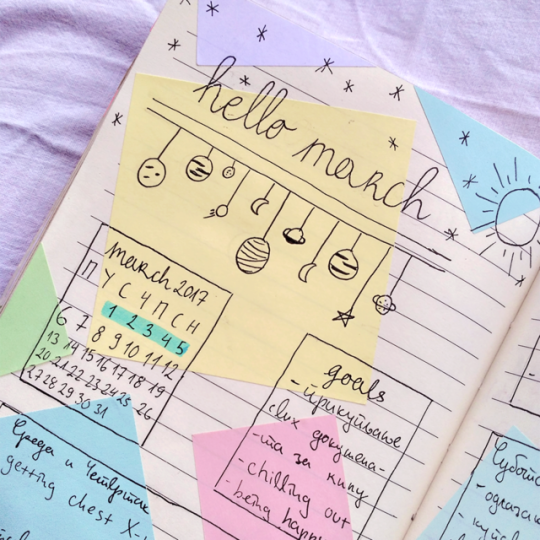 hello march
march 2017
П У С Ч П С Н
1 2 3 4 5
6 7 8 9 10 11 12
13 14 15 16 17 18 19
20 21 22 23 24 25 26
27 28 29 30 31
goals
- прикупване
- на
- chilling out
- being happy
Сряда и Четвъртък
getting chest X-
Събота